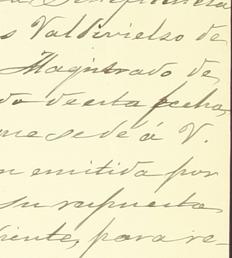 s Valdivielso de
Magistrado de
do de esta fecha,
me se dé á V.
n emitida por
su respuesta
diente, para re-